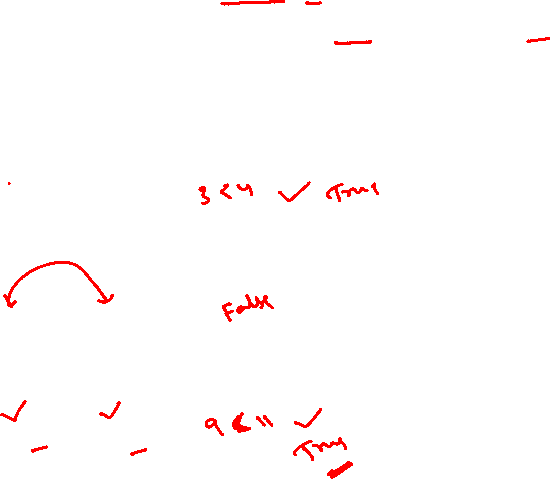 3 < 4 ✓ True
False
9 < 11 ✓
True